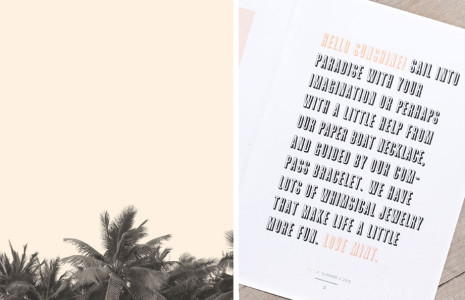 HELLO SUNSHINE! SAIL INTO
PARADISE WITH YOUR
IMAGINATION OR PERHAPS
WITH A LITTLE HELP FROM
OUR PAPER BOAT NECKLACE,
AND GUIDED BY OUR COM-
PASS BRACELET. WE HAVE
LOTS OF WHIMSICAL JEWELRY
THAT MAKE LIFE A LITTLE
MORE FUN. LOVE MINT.